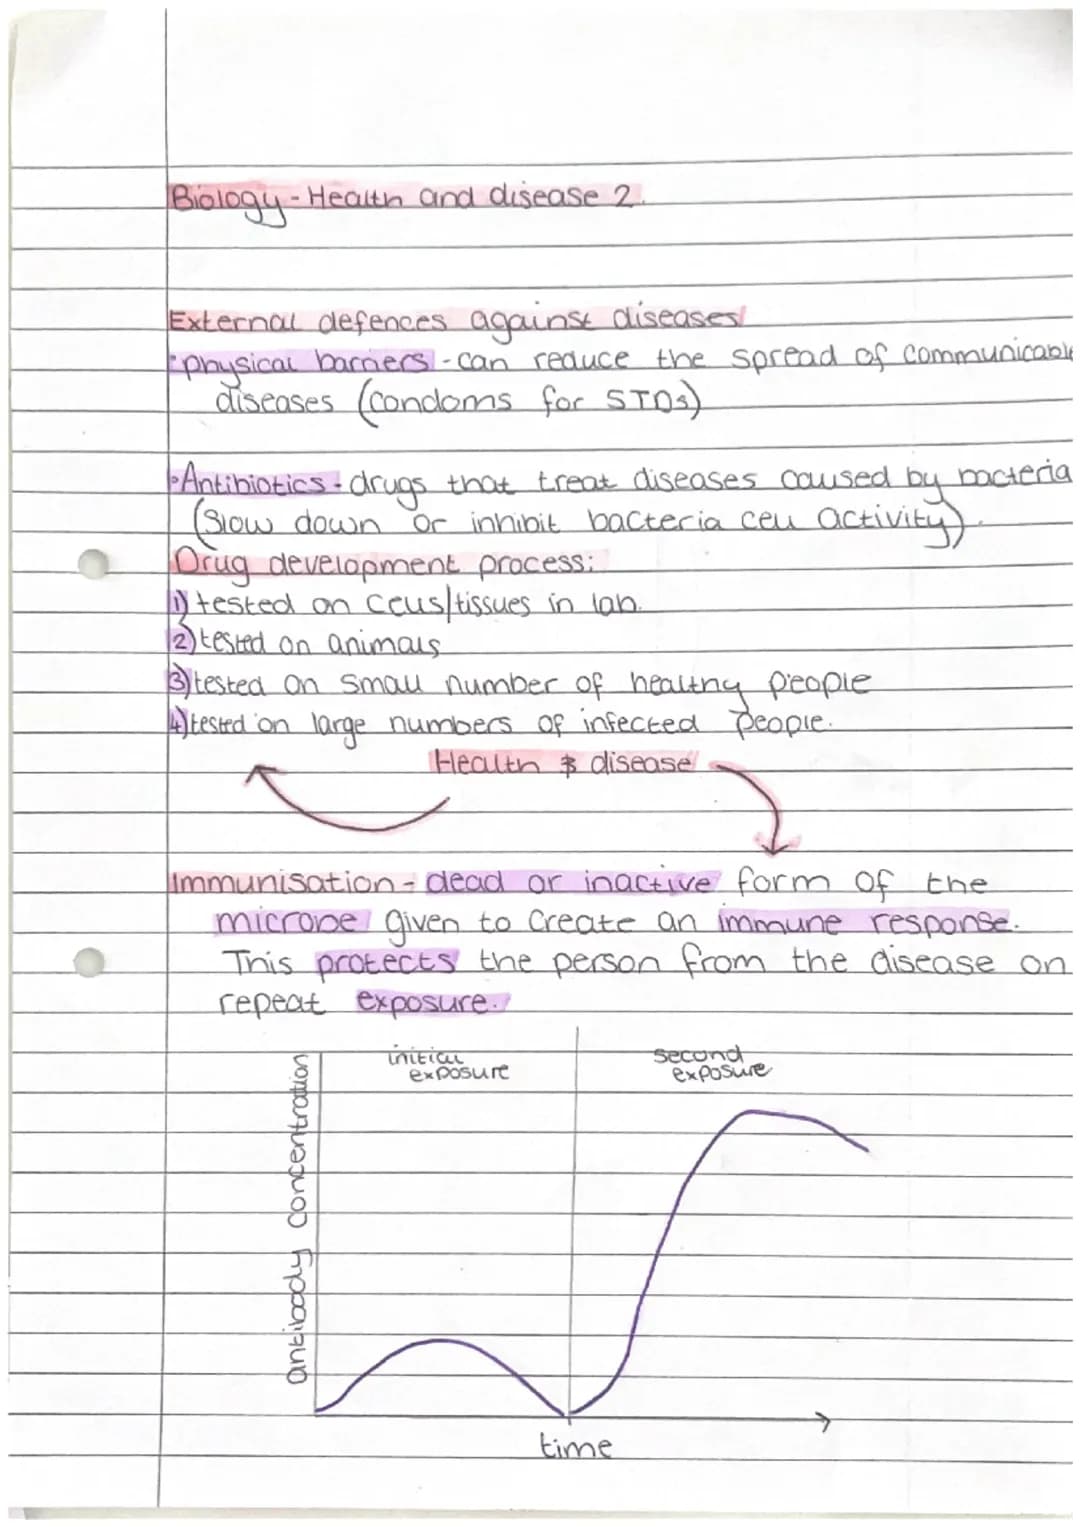 Biology - Health and disease 2.
External defences against diseases
• physical barriers - can reduce the spread of communicable
diseases (condoms for STDs)
• Antibiotics - drugs that treat diseases caused by bacteria
(slow down or inhibit bacteria cell activity).
Drug development process:
1) tested on cells/tissues in lab.
2) tested on animals
3) tested on small number of healthy people
4) tested on large numbers of infected people.
Health & disease
Immunisation - dead or inactive form of the
microbe given to create an immune response.
This protects the person from the disease on
repeat exposure.
initial
exposure
second
exposure
antibody concentration
time